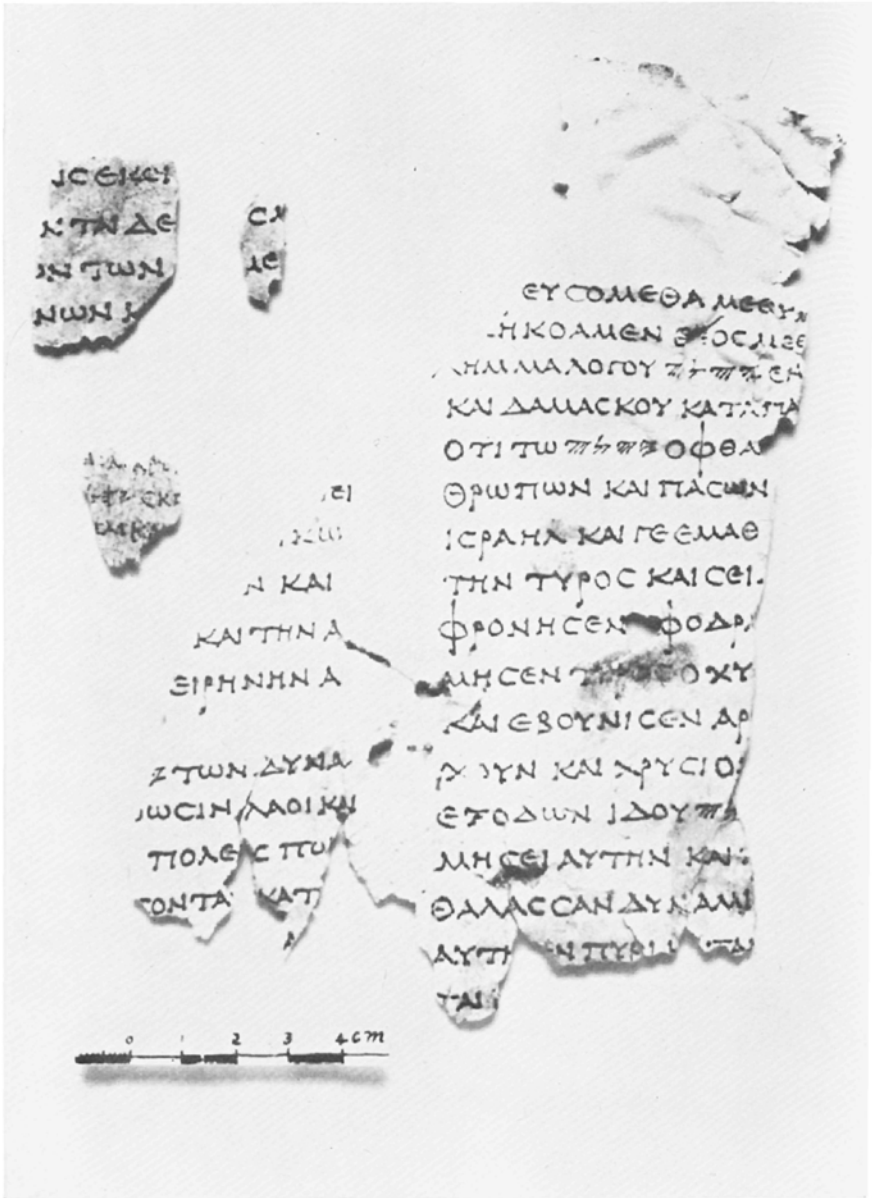 ΙϹ ΕΚΕΙ
Ν ΤΗ ΔΕ
ΩΝ ΤΩΝ
ΝΩΝ
ΔΕ
ΕΙ
ΚΩ
Ν ΚΑΙ
ΚΑΙ ΤΗΝ Α
ΕΙΡΗΝΗΝ Α
ΤΩΝ ΔΥΝΑ
ΩϹΙΝ ΛΑΟΙ ΚΑΙ
ΠΟΛΕΙϹ ΠΟ
ΤΟΝΤΑΙ ΚΑΤ
ΕΥϹΟΜΕΘΑ ΜΕΘ ΥΜ
ΗΚΟΑΜΕΝ ΘΕΟϹ ΜΕΘ
ΛΗΜΜΑ ΛΟΓΟΥ 𐤉𐤄𐤅𐤄 ΕΝ
ΚΑΙ ΔΑΜΑϹΚΟΥ ΚΑΤΑΠΑ
ΟΤΙ ΤΩ 𐤉𐤄𐤅𐤄 ΟΦΘΑ
ΘΡΩΠΩΝ ΚΑΙ ΠΑϹΩΝ
ΙϹΡΑΗΛ ΚΑΙ ΓΕ ΕΜΑΘ
ΤΗΝ ΤΥΡΟϹ ΚΑΙ ϹΕΙ
ΦΡΟΝΗϹΕΝ ΦΟΔΡΑ
ΜΗϹΕΝ ΤΥΡΟϹ ΟΧΥ
ΚΑΙ ΕΒΟΥΝΙϹΕΝ ΑΡ
ΧΟΥΝ ΚΑΙ ΧΡΥϹΙΟ
ΕΞΟΔΩΝ ΙΔΟΥ 𐤉𐤄
ΜΗϹΕΙ ΑΥΤΗΝ ΚΑΙ
ΘΑΛΑϹϹΑΝ ΔΥΝΑΜΙ
ΑΥΤΗ ΕΝ ΠΥΡΙ ΤΑΙ
ΤΑΙ
0 1 2 3 4 cm